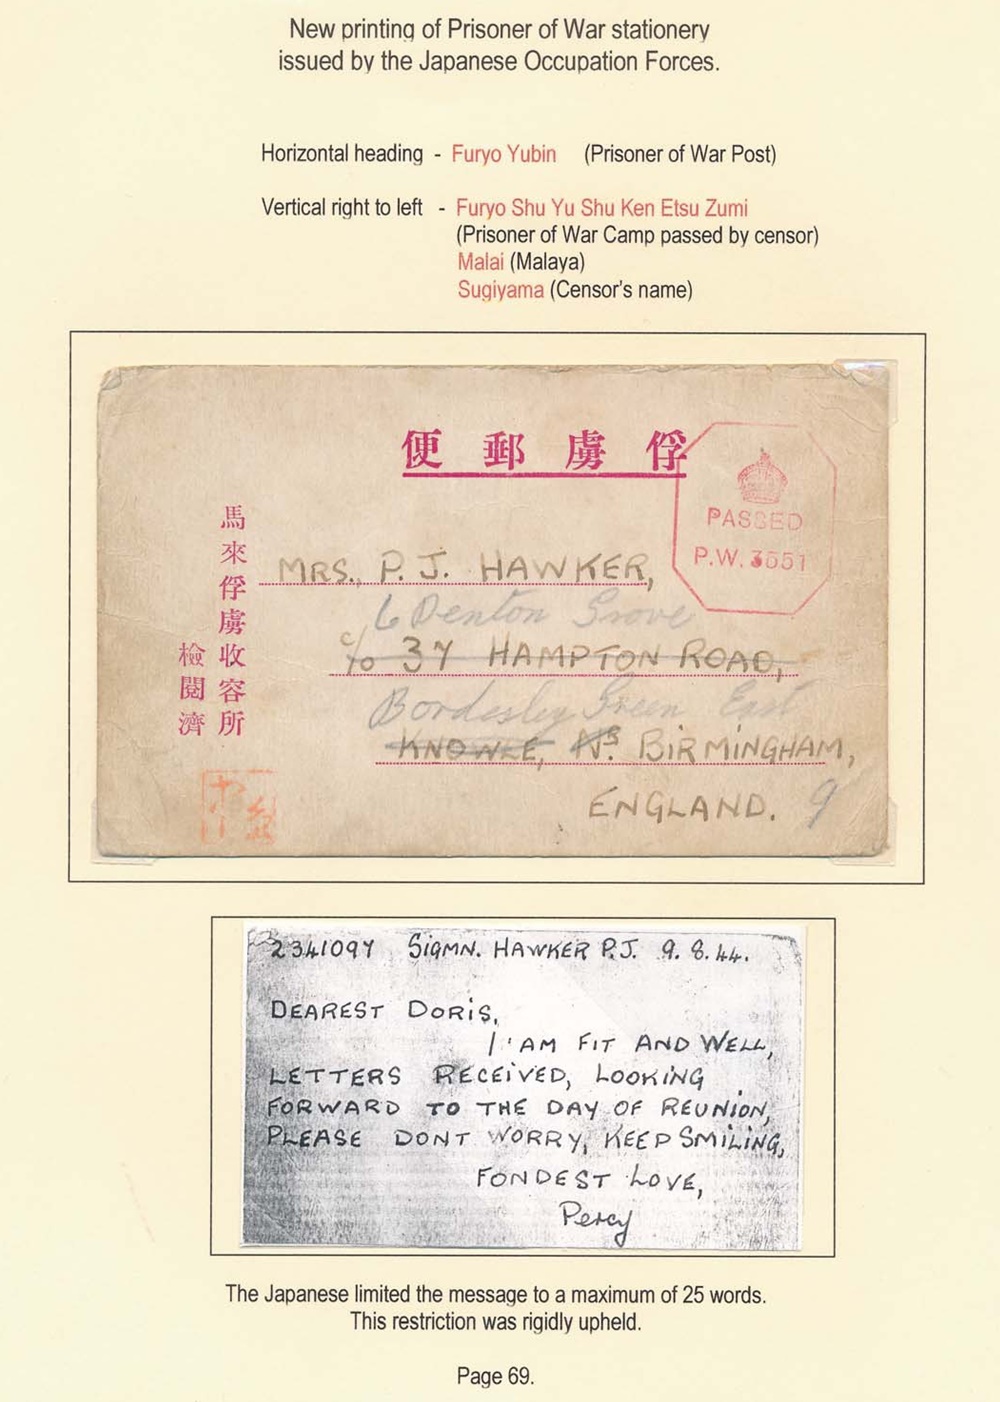 New printing of Prisoner of War stationery
issued by the Japanese Occupation Forces.
Horizontal heading - Furyo Yubin (Prisoner of War Post)
Vertical right to left - Furyo Shu Yu Shu Ken Etsu Zumi
(Prisoner of War Camp passed by censor)
Malai (Malaya)
Sugiyama (Censor's name)
便郵虜俘
PASSED
P.W. 3551
馬來俘虜收容所
檢閱濟
MRS., P. J. HAWKER,
6 Denton Grove
c/o 37 HAMPTON ROAD,
Bordesley Green East
KNOWLE, Nr. BIRMINGHAM,
ENGLAND. 9
2341097 SIGMN. HAWKER P.J. 9. 8. 44.
DEAREST DORIS,
I AM FIT AND WELL,
LETTERS RECEIVED, LOOKING
FORWARD TO THE DAY OF REUNION,
PLEASE DONT WORRY, KEEP SMILING,
FONDEST LOVE,
Percy
The Japanese limited the message to a maximum of 25 words.
This restriction was rigidly upheld.
Page 69.